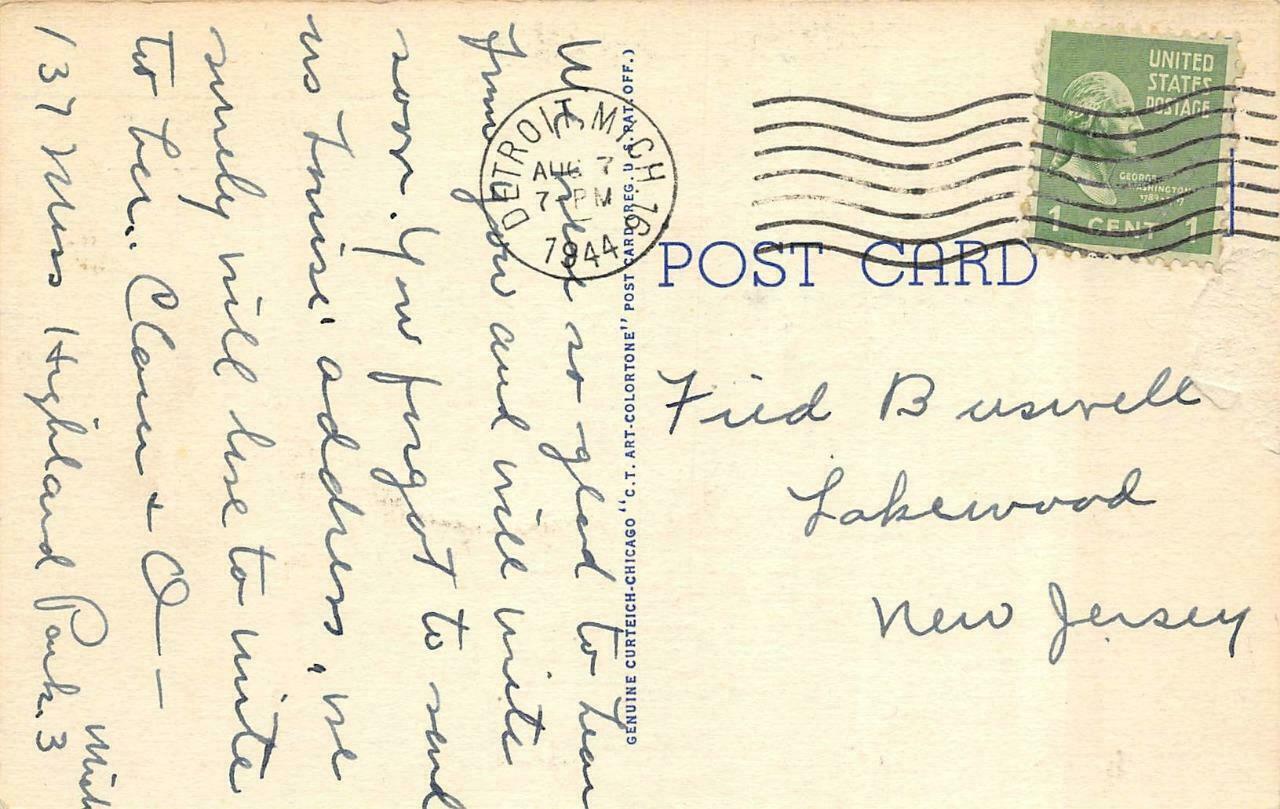 We were so glad to hear
from you and will write
soon. You forgot to send
us Louise' address, we
surely will like to write
to her. Clara + O —
137 Moss Highland Park. 3
Mich
GENUINE CURTEICH-CHICAGO "C.T. ART-COLORTONE" POST CARD (REG. U.S. PAT. OFF.)
DETROIT, MICH. 16
AUG 7
7-PM
1944
UNITED
STATES
POSTAGE
GEORGE
WASHINGTON
1 CENT 1
POST CARD
Fred Buswell
Lakewood
New Jersey